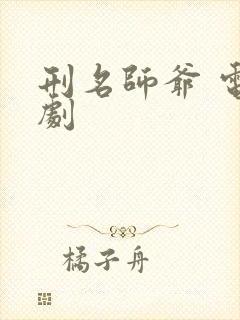 刑名師爺 電
劇
橘子舟